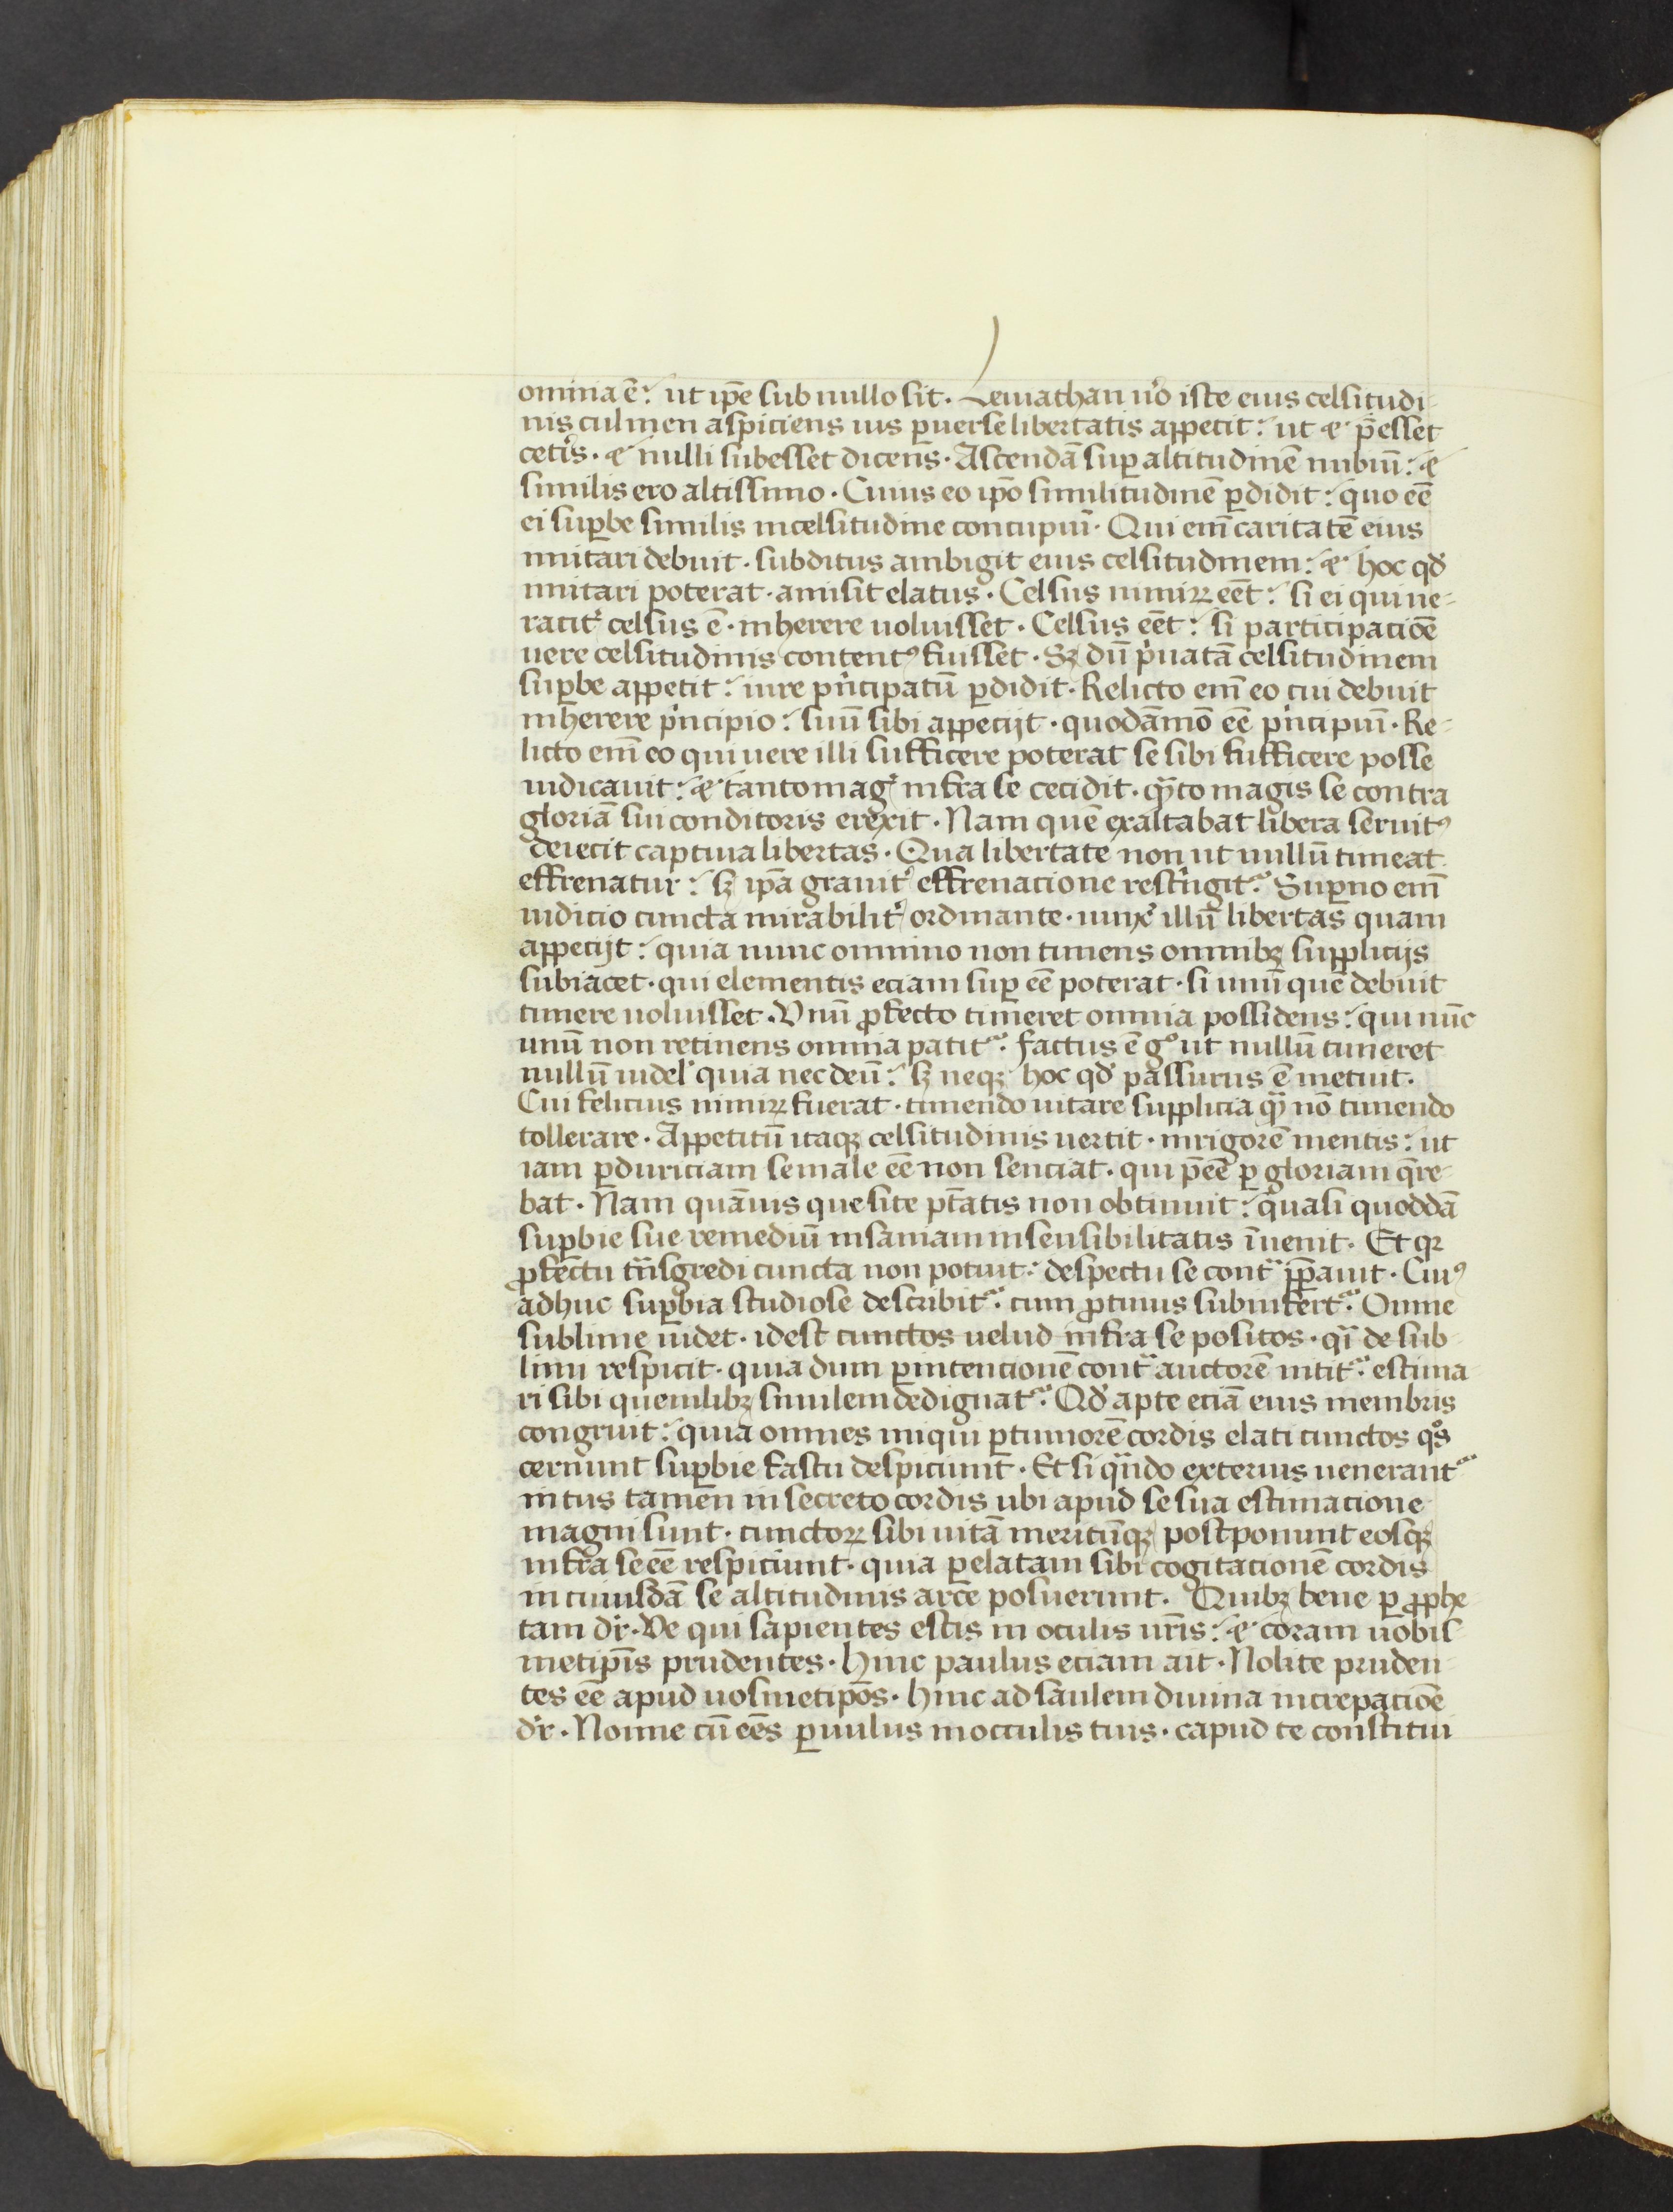 omnia ē: ut ip̄e sub nullo sit. Leuiathan u̾o iste eius celsitudi-
nis culmen aspiciens ius ꝑuerse libertatis appetit: ut ⁊ p̄esset
cetis̾. ⁊ nulli subesset dicens. Ascendā suꝑ altitudinē nubiū: ⁊
similis ero altissimo. Cuius eo ip̄o similitudinē ꝑdidit: quo eē̄
ei suꝑbe similis in celsitudine concupiuı̄. Qui eni̅ caritatē eius
imitari debuit. subditus ambigit eius celsitudinem: ⁊ hoc qd̾
imitari poterat. amisit elatus. Celsus nimiꝝ eēt: si ei qui ue-
racit̾ celsus ē. inherere uoluisset. Celsus eēt: si participaciōe
uere celsitudinis contentꝰ fuisset. Sꝫ dū p̾uatā celsitudinem
suꝑbe appetit: iure p̾ncipatū ꝑdidit. Relicto em̄ eo cui debuit
inherere p̾ncipio: suū sibi appecijt. quodāmō eē p̾ncipiū. Re-
licto em̄ eo qui uere illi sufficere poterat se sibi sufficere posse
iudicauit: ⁊ tanto mag̾ infra se cecidit. qᷓto magis se contra
gloriā sui conditoris erexit. Nam quē exaltabat libera seruitꝰ
deiecit captiua libertas. Qua libertate non ut nullū timeat
effrenatur: sꝫ ip̄a grauit̾ effrenacione rest̾ngitᷣ. Suꝑno em̄
iudicio cuncta mirabilit̾ ordinante. iūxͨ illū libertas quam
appecijt: quia nunc omnino non timens omnibꝫ supplicijs
subiacet. qui elementis eciam suꝑ eē poterat. si unū quē debuit
timere uoluisset. Unū ꝓfecto timeret omnia possidens: qui nūc
unū non retinens omnia patitᷣ. factus ē gͦ ut nullū timeret
nullū uidel̾ quia nec deū: sꝫ neqꝫ hoc qd̾ passurus ē metuit.
Cui felicius nimiꝝ fuerat. timendo uitare supplicia qᷓ nō timendo
tollerare. Appetitū itaqꝫ celsitudinis uertit. in rigorē mentis: ut
iam ꝑ duriciam se male eē non senciat. qui p̄eē ꝑ gloriam q̄re-
bat. Nam quāuis quesite ptātis non obtinuit: quasi quoddā
suꝑbie sue remediū insaniam insensibilitatis īuenit. Et qꝛ
ꝓfectu tͣnsgredi cuncta non potuit: despectu se contͣ p̄p̄auit. Cuiꝰ
adhuc suꝑbia studiose describitᷣ. cum ꝓtinus subinfertᷣ. Omne
sublime uidet. id est cunctos uelud infra se positos. qᷓ de sub-
limi respicit. quia dum ꝑ intencionē contͣ auctorē nititᷣ. estima-
ri sibi quemlibꝫ similem dedignatᷣ. Qd̾ apte eciā eius membris
congruit: quia omnes iniqui ꝑ tumorē cordis elati cunctos qͦs
cernunt suꝑbie fastu despiciunt. Et si qᷓndo exterius uenerantᷣ
intus tamen in secreto cordis ubi apud se sua estimacione
magni sunt. cunctoꝝ sibi uitā meritūqꝫ postponunt eosqꝫ
infra se eē respiciunt. quia ꝑ elatam sibi cogitacionē cordis
in cuiusdā se altitudinis arce posuerunt. Quibꝫ bene ꝑ ꝓphe-
tam dr̾. Ve qui sapientes estis in oculis ur̄is: ⁊ coram uobis
metip̄is prudentes. Hinc paulus eciam ait. Nolite pruden-
tes eē apud uosmetip̄os. Hinc ad saulem diuina increpaciōe
dr̾. Nonne cū eēs ꝑuulus in occulis tuis. capud te constitui